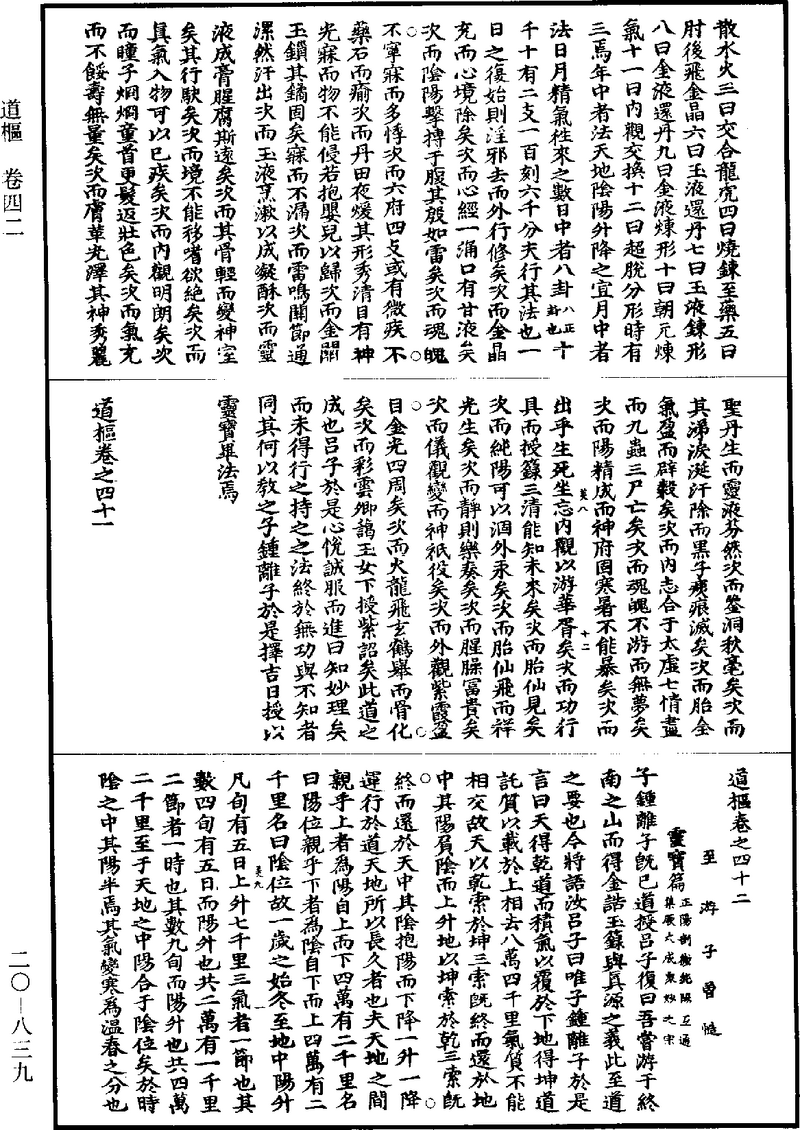 道樞　卷四二
二〇—八三九
散水火三曰交合龍虎四曰燒鍊至藥五曰
肘後飛金晶六曰玉液還丹七曰玉液鍊形
八曰金液還丹九曰金液煉形十曰朝元煉
氣十一曰內觀交換十二曰超脫分形時有
三焉年中者法天地陰陽升降之宜月中者
法日月精氣往來之數日中者八卦八正卦也十
千十有二支一百刻六千分夫行其法也一
日之復始則淫邪去而外行修矣次而金晶
充而心境除矣次而心經一涌口有甘液矣
次而陰陽擊搏于腹其殷如雷矣次而魂魄
不寧寐而多悸次而六府四支或有微疾不
藥石而瘉次而丹田夜煖其形秀清目有神
光寐而物不能侵若抱嬰兒以歸次而金關
玉鎖其鐍固矣寐而不漏次而雷鳴關節通
漯然汗出次而玉液烹漱以成凝酥次而靈
液成膏腥腐斯遠矣次而其骨輕而變神室
矣其行馱矣次而境不能移嗜欲絕矣次而
真氣入物可以已疾矣次而內觀明朗矣次
而瞳子烱烱童首更髮返壯色矣次而氣充
而不餒壽無量矣次而膚華光澤其神秀麗
聖丹生而靈液芬然次而鑒洞秋毫矣次而
其涕淚涎汗除而黑子瘢痕滅矣次而胎全
氣盈而辟穀矣次而內志合于太虛七情盡
而九蟲三尸亡矣次而魂魄不游而無夢矣
次而陽精成而神府固寒暑不能暴矣次而
出乎生死坐忘內觀以游華胥矣次而功行
具而授籙三清能知未來矣次而胎仙見矣
次而純陽可以涸外汞矣次而胎仙飛而祥
光生矣次而靜則樂奏矣次而腥臊富貴矣
次而儀觀變而神祇役矣次而外觀紫霞盈
目金光四周矣次而火龍飛玄鶴舉而骨化
矣次而彩雲卿靄玉女下授紫詔矣此道之
成也呂子於是心悅誠服而進曰知妙理矣
而未得行之持之之法終於無功與不知者
同其何以教之子鍾離子於是擇吉日授以
靈寶畢法焉
道樞卷之四十一
道樞卷之四十二
至游子曾慥
靈寶篇正陽剖微純陽互通集厥大成衆妙之宗
子鍾離子既已道授呂子復曰吾嘗游于終
南之山而得金誥玉籙與真源之義此至道
之要也今將語汝呂子曰唯子鍾離子於是
言曰天得乾道而積氣以覆於下地得坤道
託質以載於上相去八萬四千里氣質不能
相交故天以乾索於坤三索既終而還於地
中其陽負陰而上升地以坤索於乾三索既
終而還於天中其陰抱陽而下降一升一降
運行於道天地所以長久者也夫天地之間
親乎上者為陽自上而下四萬有二千里名
曰陽位親乎下者為陰自下而上四萬有二
千里名曰陰位故一歲之始冬至地中陽升
凡旬有五日上升七千里三氣者一節也其
數四旬有五日而陽升也共二萬有一千里
二節者一時也其數九旬而陽升也共四萬
二千里至于天地之中陽合于陰位矣於時
陰之中其陽半焉其氣變寒為溫春之分也